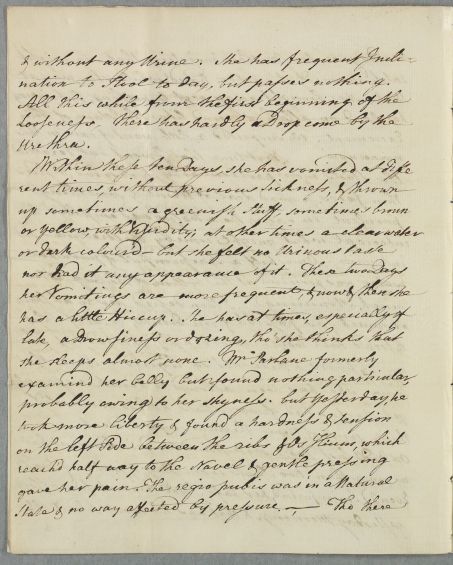 & without any Urine. She has frequent Incli-
nation to Stool to day, but passes nothing.
All this while from the first beginning of the
Looseness. There has hardly a Drop come by the
Urethra.
Within these ten Days, she has vomited at diffe
rent times without previous Sickness, & thrown
up sometimes a greenish stuff, sometimes brown
or yellow with ; at other times a clear water
or dark colour'd - but she felt no Urinous taste
nor had it any appearance of it. These two Days
her Vomitings are more frequent, & now & then she
has a little Hiccup. She has at times, especially of
late, a Drowsiness or dozing, tho' she thinks that
she sleeps almost none. Mr Parlane formerly
examind her belly but found nothing particular,
probably owing to her shyness. but Yesterday, he
took more liberty & found a hardness & tension
on the left side between the ribs & Os Ilium, which
reachd half way to the Navel & gentle pressing
gave her pain. The regio pubis was in a Natural
State & no way affected by pressure. — Tho there